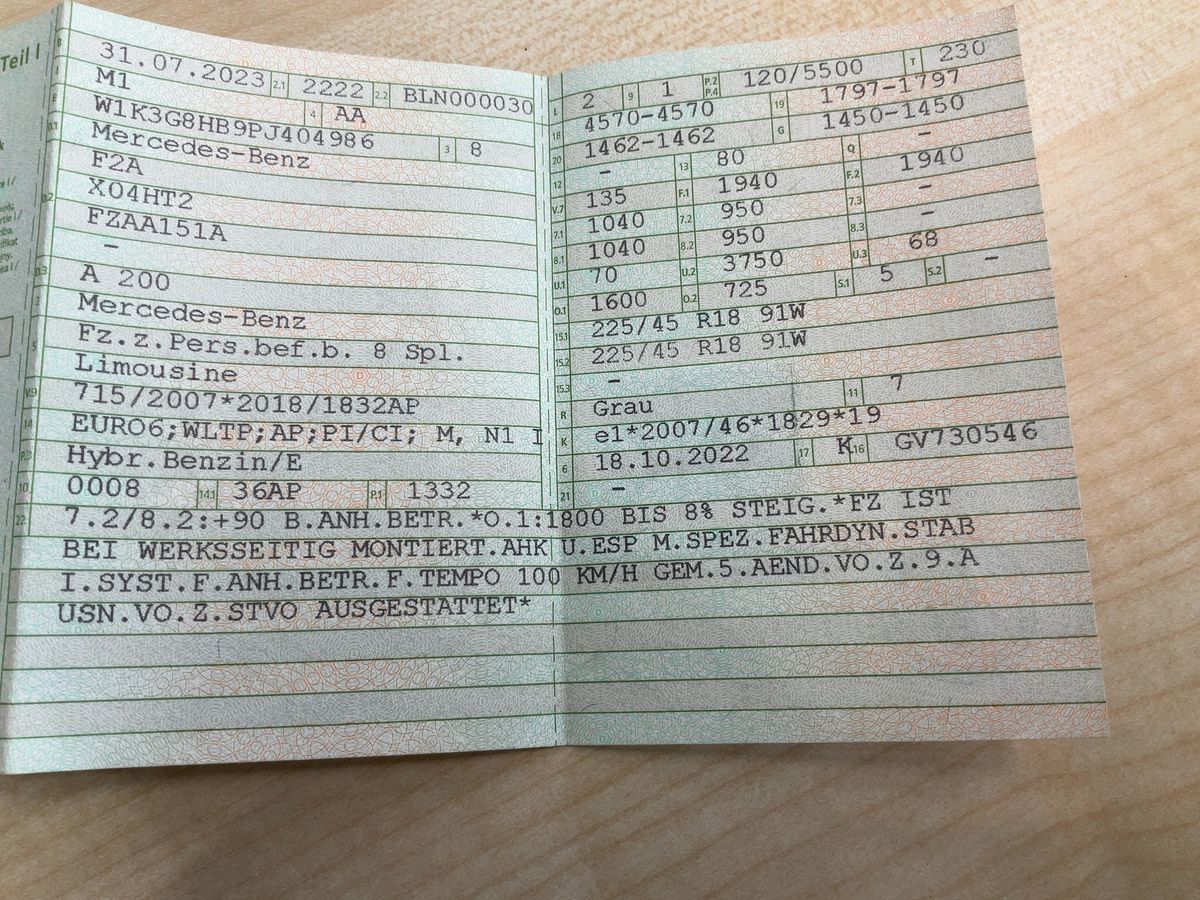 Teil I
B 31.07.2023 2.1 2222 2.2 BLN000030
J M1 4 AA
E W1K3G8HB9PJ404986 3 8
D.1 Mercedes-Benz
F2A
D.2 X04HT2
FZAA151A
–
D.3 A 200
2 Mercedes-Benz
5 Fz.z.Pers.bef.b. 8 Spl.
Limousine
V.9 715/2007*2018/1832AP
14 EURO6;WLTP;AP;PI/CI; M, N1 I
P.3 Hybr.Benzin/E
10 0008 14.1 36AP P.1 1332
L 2 9 1 P.2 P.4 120/5500 T 230
18 4570-4570 19 1797-1797
20 1462-1462 G 1450-1450
12 – 13 80 Q –
V.7 135 F.1 1940 F.2 1940
7.1 1040 7.2 950 7.3 –
8.1 1040 8.2 950 8.3 –
U.1 70 U.2 3750 U.3 68
O.1 1600 O.2 725 S.1 5 S.2 –
15.1 225/45 R18 91W
15.2 225/45 R18 91W
15.3 –
R Grau 11 7
K e1*2007/46*1829*19
6 18.10.2022 17 K 16 GV730546
21 –
22 7.2/8.2:+90 B.ANH.BETR.*O.1:1800 BIS 8% STEIG.*FZ IST
BEI WERKSSEITIG MONTIERT.AHK U.ESP M.SPEZ.FAHRDYN.STAB
I.SYST.F.ANH.BETR.F.TEMPO 100 KM/H GEM.5.AEND.VO.Z.9.A
USN.VO.Z.STVO AUSGESTATTET*